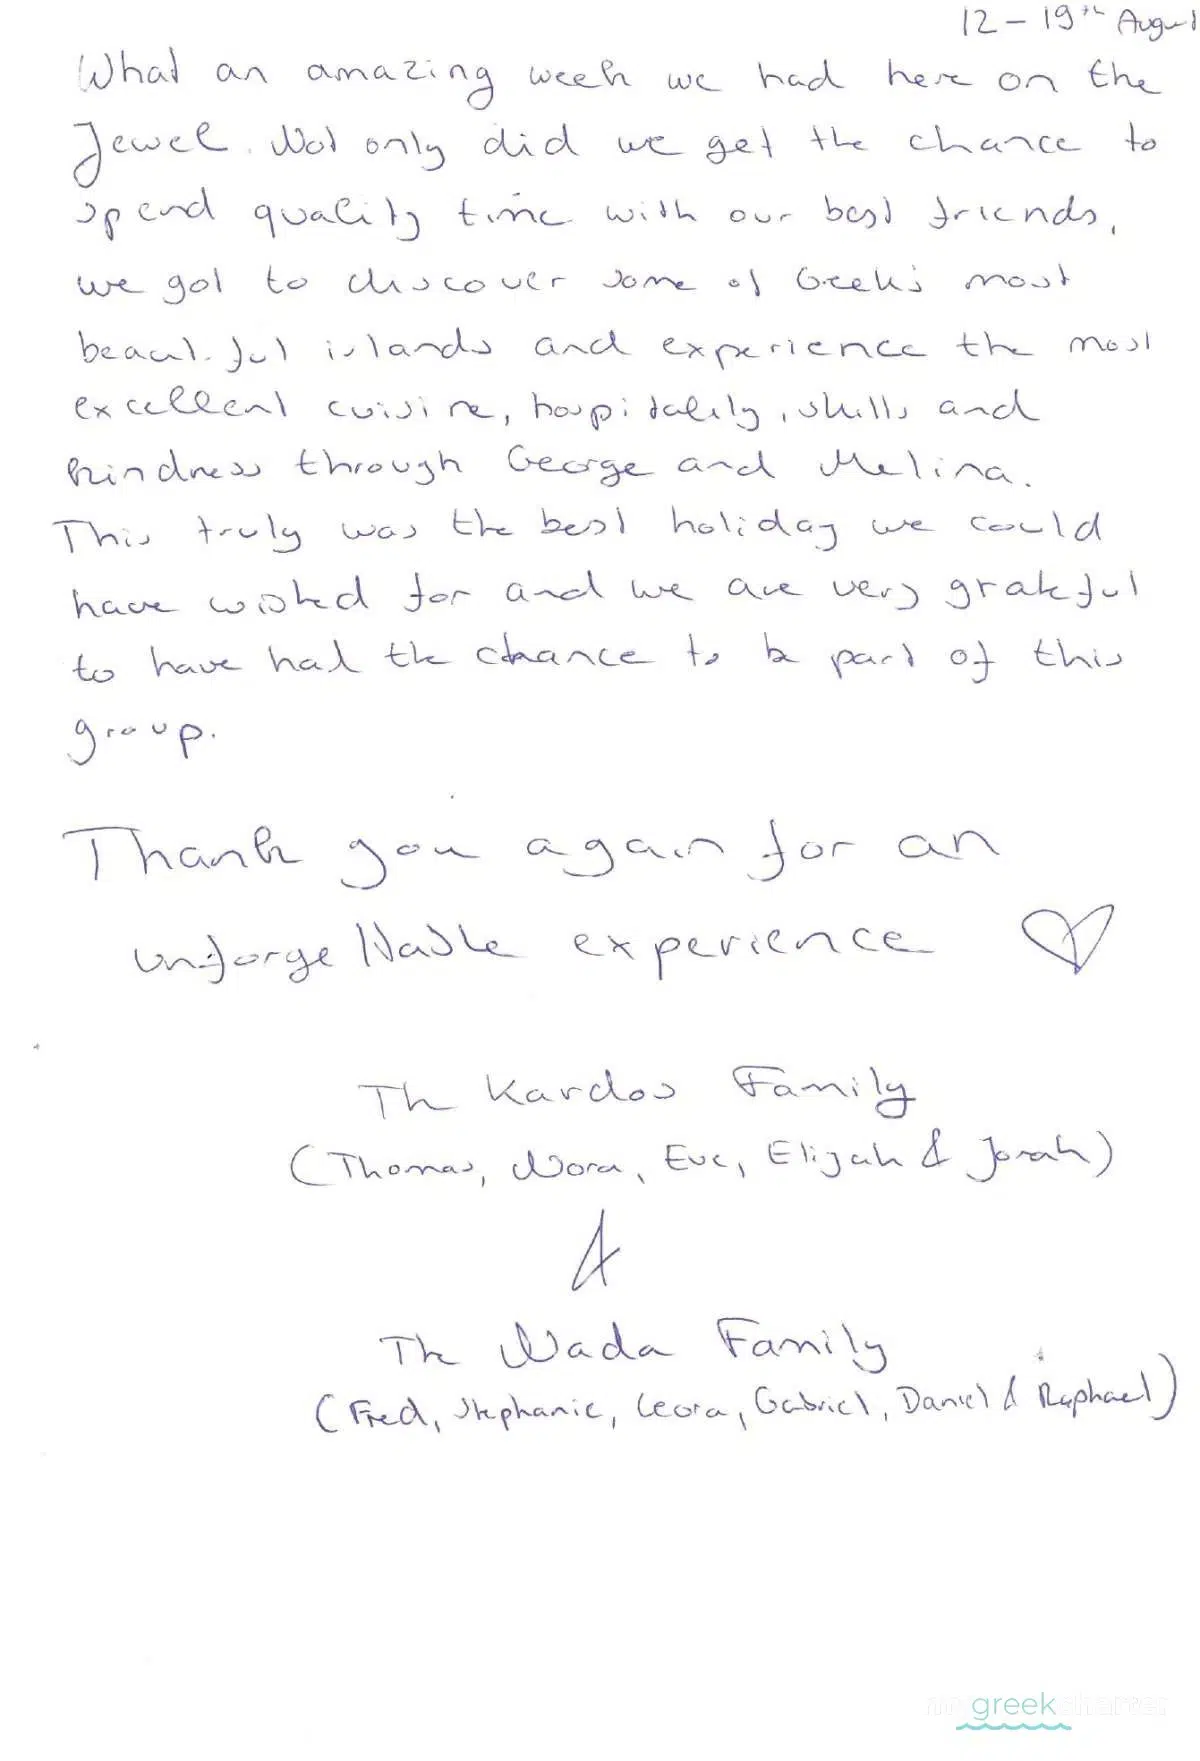 12 - 19th August
What an amazing week we had here on the
Jewel. Not only did we get the chance to
spend quality time with our best friends,
we got to discover some of Greek's most
beautiful islands and experience the most
excellent cuisine, hospitality, skills and
kindness through George and Melina.
This truly was the best holiday we could
have wished for and we are very grateful
to have had the chance to be part of this
group.
Thank you again for an
unforgettable experience ♡
The Kardos Family
(Thomas, Nora, Eve, Elijah & Jonah)
&
The Wada Family
(Fred, Stephanie, Leora, Gabriel, Daniel & Raphael)
my greek charter